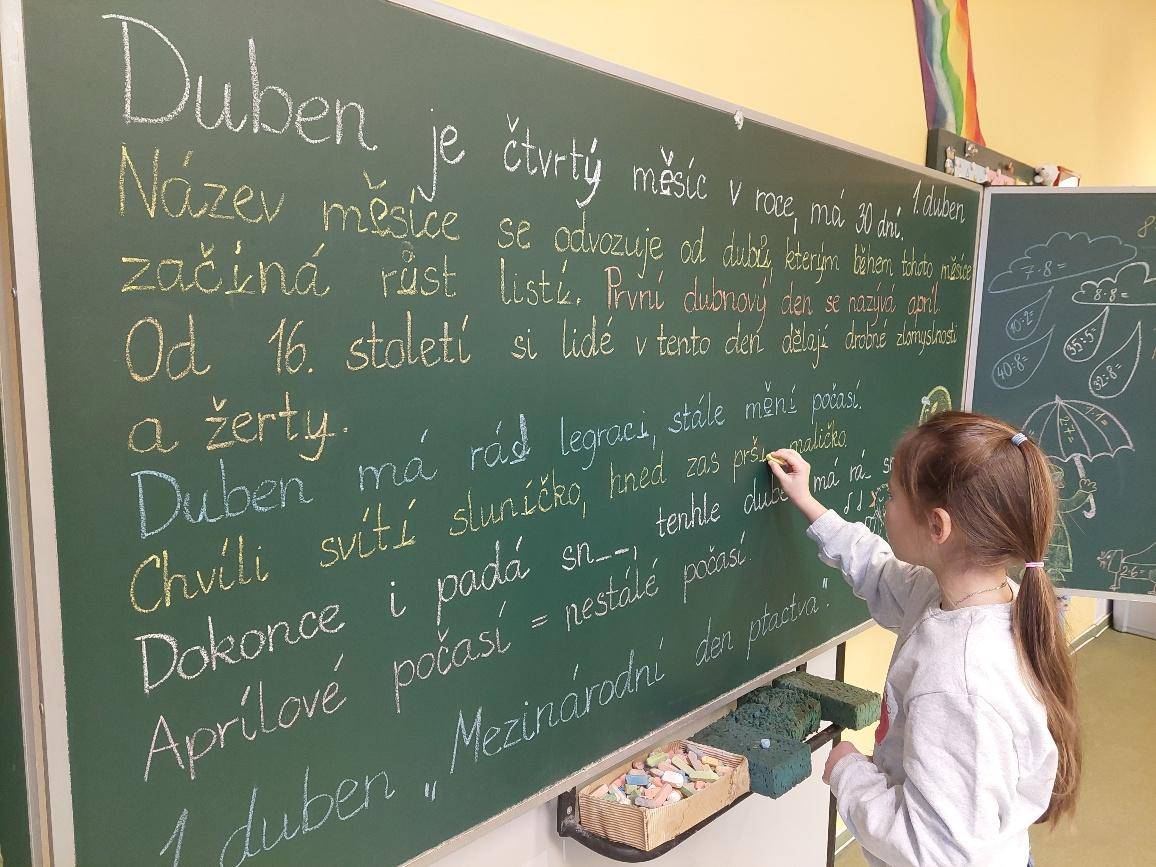 Duben je čtvrtý měsíc v roce, má 30 dní.
1. duben
Název měsíce se odvozuje od dubů, kterým během tohoto měsíce
začíná růst listí. První dubnový den se nazývá apríl.
Od 16. století si lidé v tento den dělají drobné zlomyslnosti
a žerty.
Duben má rád legraci, stále mění počasí.
Chvíli svítí sluníčko, hned zas prší maličko.
Dokonce i padá sn_ _, tenhle duben má rá
Aprílové počasí = nestálé počasí
1. duben „Mezinárodní den ptactva".
7·8=
8·8=
10:2=
35:5=
40:8=
32:8=